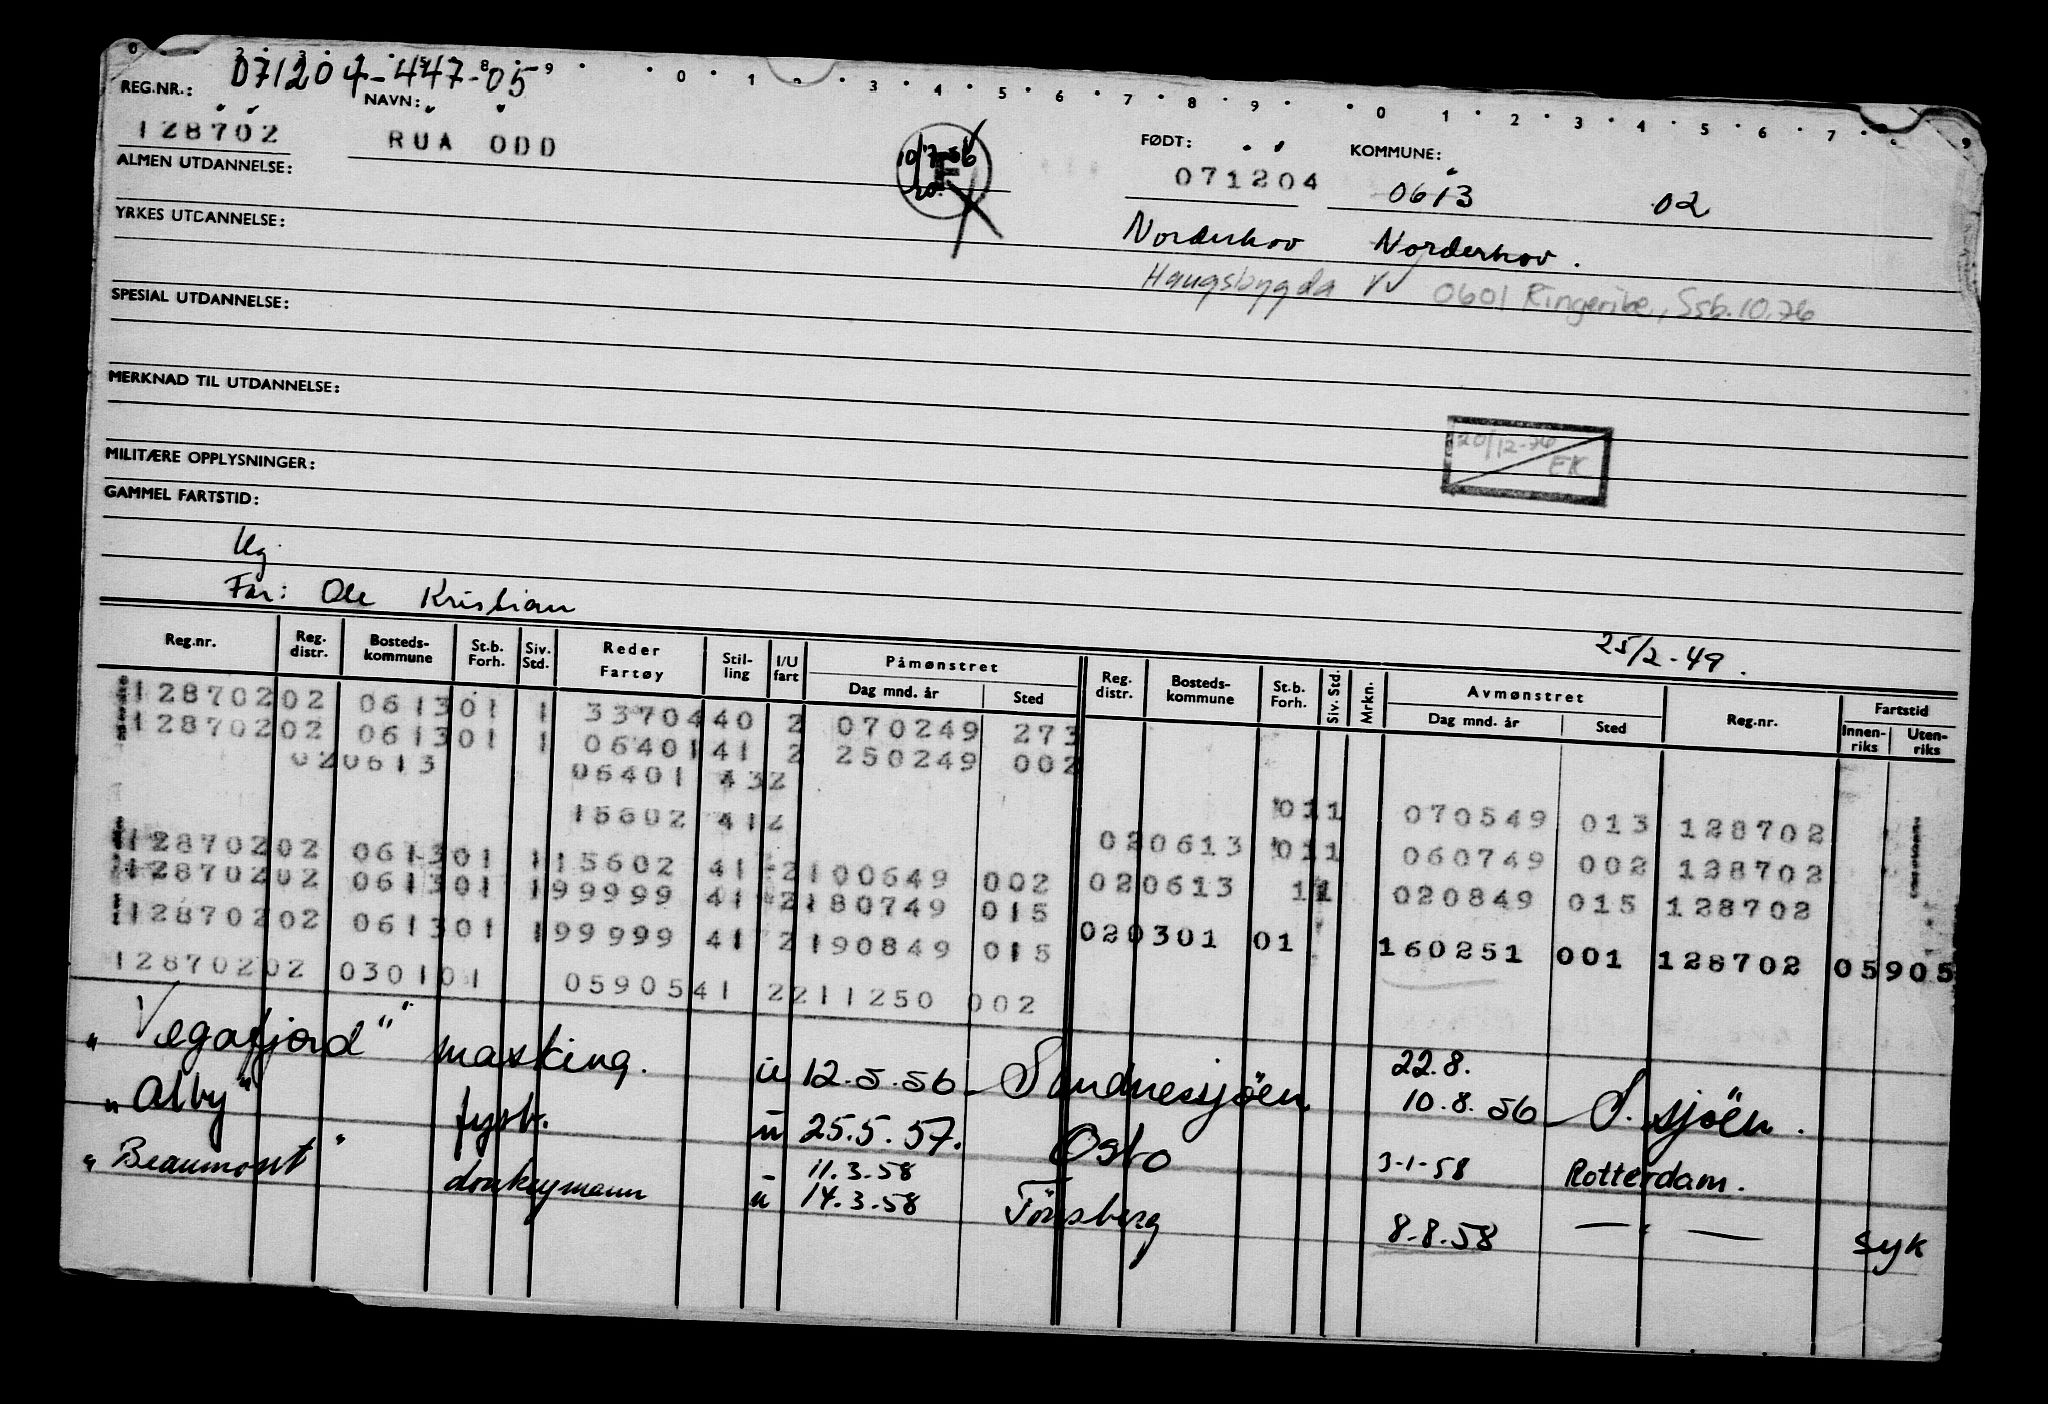 071204-447-05
REG.NR.: NAVN: FØDT: KOMMUNE:
128702 RUA ODD 10/7-56 071204 0613 02
ALMEN UTDANNELSE:
YRKES UTDANNELSE: Norderhov Norderhov.
Haugsbygda 0601 Ringerike, Ssb.10.76
SPESIAL UTDANNELSE:
MERKNAD TIL UTDANNELSE:
20/12-76 EK
MILITÆRE OPPLYSNINGER:
GAMMEL FARTSTID:
Ug.
Far: Ole Kristian
25/2-49.
Reg.nr. Reg. distr. Bosteds-kommune St.b. Forh. Siv. Std. Reder Fartøy Stil-ling I/U fart Påmønstret Dag mnd. år Sted Reg. distr. Bosteds-kommune St.b. Forh. Siv. Std. Mrkn. Avmønstret Dag mnd. år Sted Reg.nr. Fartstid Innen-riks Uten-riks
128702 02 0613 01 1 33704 40 2 070249 273
128702 02 0613 01 1 06401 41 2 250249 002
02 0613 06401 43 2 011 070549 013 128702
15602 41 2 02 0613 011 060749 002 128702
128702 02 0613 01 1 15602 41 2 100649 002 02 0613 11 020849 015 128702
128702 02 0613 01 1 99999 41 2 180749 015
128702 02 0613 01 1 99999 41 2 190849 015 02 0301 01 160251 001 128702 05905
128702 02 0301 01 05905 41 2 211250 002
"Vegafjord" masking. u 12.5.56 Sandnessjöen 22.8. 10.8.56 S.sjöen.
"Alby" fyrb. u 25.5.57. Oslo 3-1-58 Rotterdam.
"Beaumont" donkeymann u 11.3.58 14.3.58 Tönsberg 8.8.58 — " — syk